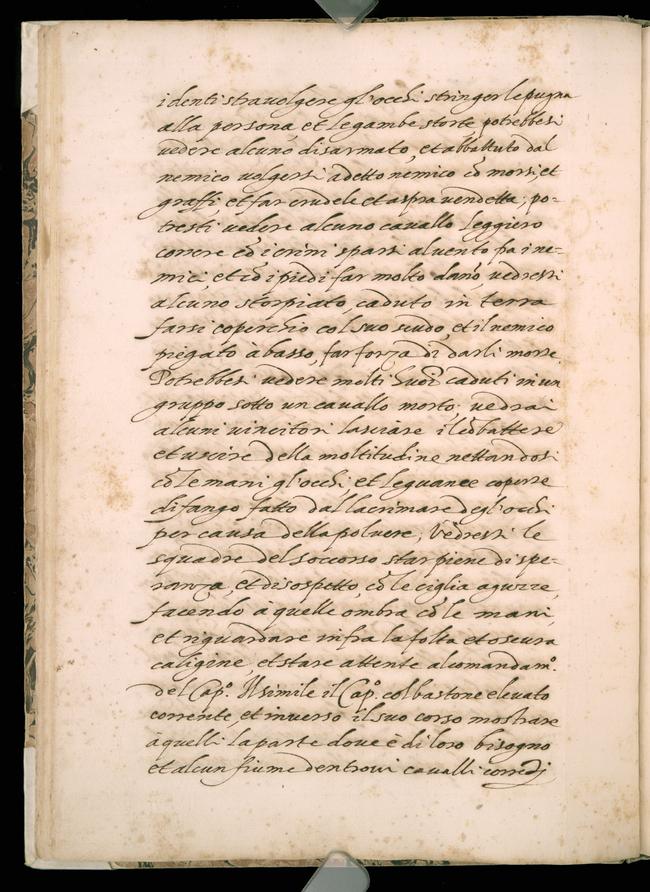 i denti stravolgere gl'occhi stringer le pugna
alla persona et le gambe storte potrebbesi
vedere alcuno disarmato, et abbattuto dal
nemico volgersi a detto nemico cō morsi, et
graffi et far crudele et aspra vendetta, po-
tresti vedere alcuno cavallo leggiero
correre cō i crini sparsi al vento fra i ne-
mici, et cō i piedi far molto danō, vedresti
alcuno storpiato, caduto in terra
farsi coperchio col suo scudo, et il nemico
piegato à basso, far forza di darli morte.
Potrebbesi vedere molti huoī caduti in un
gruppo sotto un cavallo morto; vedrai
alcuni vincitori lasciare il cōbattere
et uscire della moltitudine nettandosi
cō le mani gl'occhi, et le guance coperte
di fango fatto dal lacrimare degl'occhi
per causa della polvere; Vedresti le
squadre del soccorso star piene di spe-
ranza, et di sospetto, cō le ciglia aguzze,
facendo à quelle ombra cō le mani,
et riguardare infra la folta et oscura
caligine, et stare attente al comandam.º
del Cap.º Il simile il Cap.º col bastone elevato
corrente, et inverso il suo corso mostrare
à quelli la parte dove è di loro bisogno
et alcun fiume dentrovi cavalli corredj